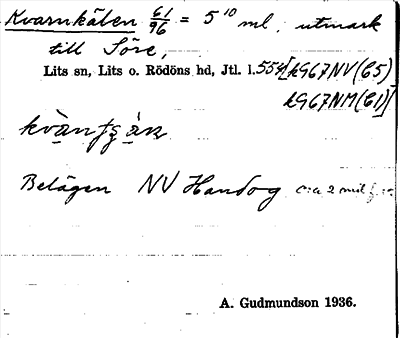 Kvarnkälen 61/96 = 5¹⁰ ml. utmark
till Söre,
Lits sn, Lits o. Rödöns hd, Jtl. l. 554 [k967NV(C5)
k967NM(C1)]
Belägen NV Handog ca 2 mil
A. Gudmundson 1936.